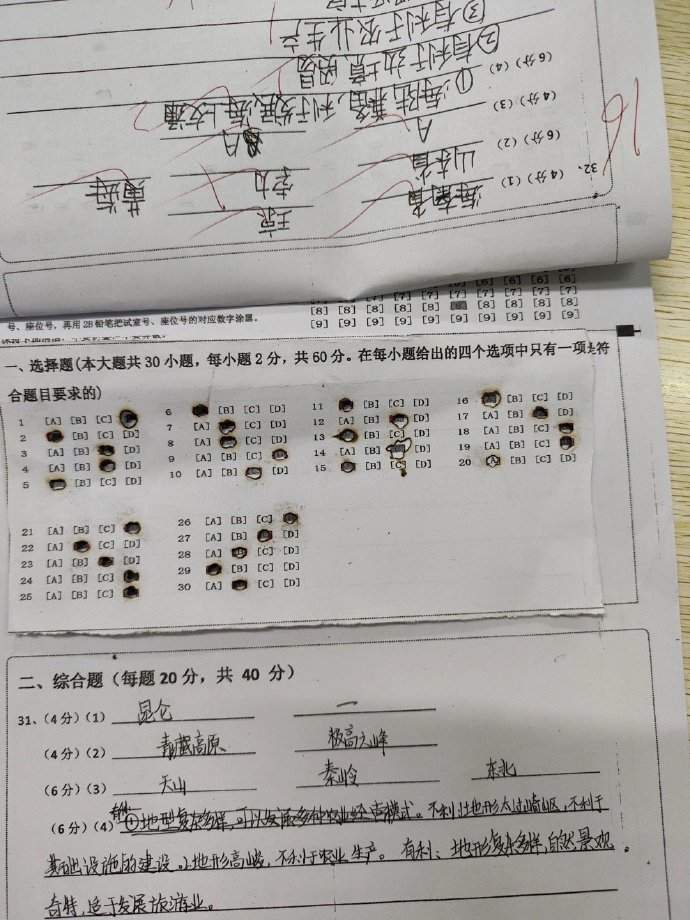 ③有利于农业生产
②有利于边境贸易
(6分)(4) ①海陆兼备,利于发展海上交通
(4分)(3) A
(6分)(2) 山东省
32、(4分)(1) 黄海
16
号、座位号,再用2B铅笔把试室号、座位号的对应数字涂黑。
[6] [6] [6] [6]
[7] [7] [7] [7] [7] [7] [7] [7]
[8] [8] [8] [8] [8] [8] [8] [8] [8]
[9] [9] [9] [9] [9] [9] [9] [9] [9] [9]
一、选择题(本大题共30小题,每小题2分,共60分。在每小题给出的四个选项中只有一项是符
合题目要求的)
1 [A] [B] [C] 6 [B] [C] [D] 11 [B] [C] [D] 16 [B] [C] [D]
2 [B] [C] [D] 7 [A] [C] [D] 12 [A] [B] [D] 17 [A] [B] [D]
3 [A] [B] [D] 8 [A] [C] [D] 13 [B] [C] [D] 18 [A] [B] [C]
4 [A] [B] [D] 9 [A] [B] [C] 14 [A] [B] [D] 19 [A] [B] [C]
5 [B] [C] [D] 10 [A] [B] [D] 15 [B] [C] [D] 20 [A] [B] [C] [D]
21 [A] [B] [C] 26 [A] [B] [C]
22 [A] [C] [D] 27 [A] [B] [D]
23 [A] [B] [D] 28 [A] [C] [D]
24 [A] [B] [C] 29 [B] [C] [D]
25 [A] [B] [C] 30 [A] [C] [D]
二、综合题(每题20分,共 40 分)
31、(4分)(1) 昆仑 一
(4分)(2) 青藏高原 极高大峰
(6分)(3) 天山 秦岭 东北
(6分)(4) ①地形复杂多样,可以发展多种农业经营模式。不利:地形太过崎岖,不利于
基础设施的建设。地形高峻,不利于农业生产。有利:地形复杂多样,自然景观
奇特,适于发展旅游业。